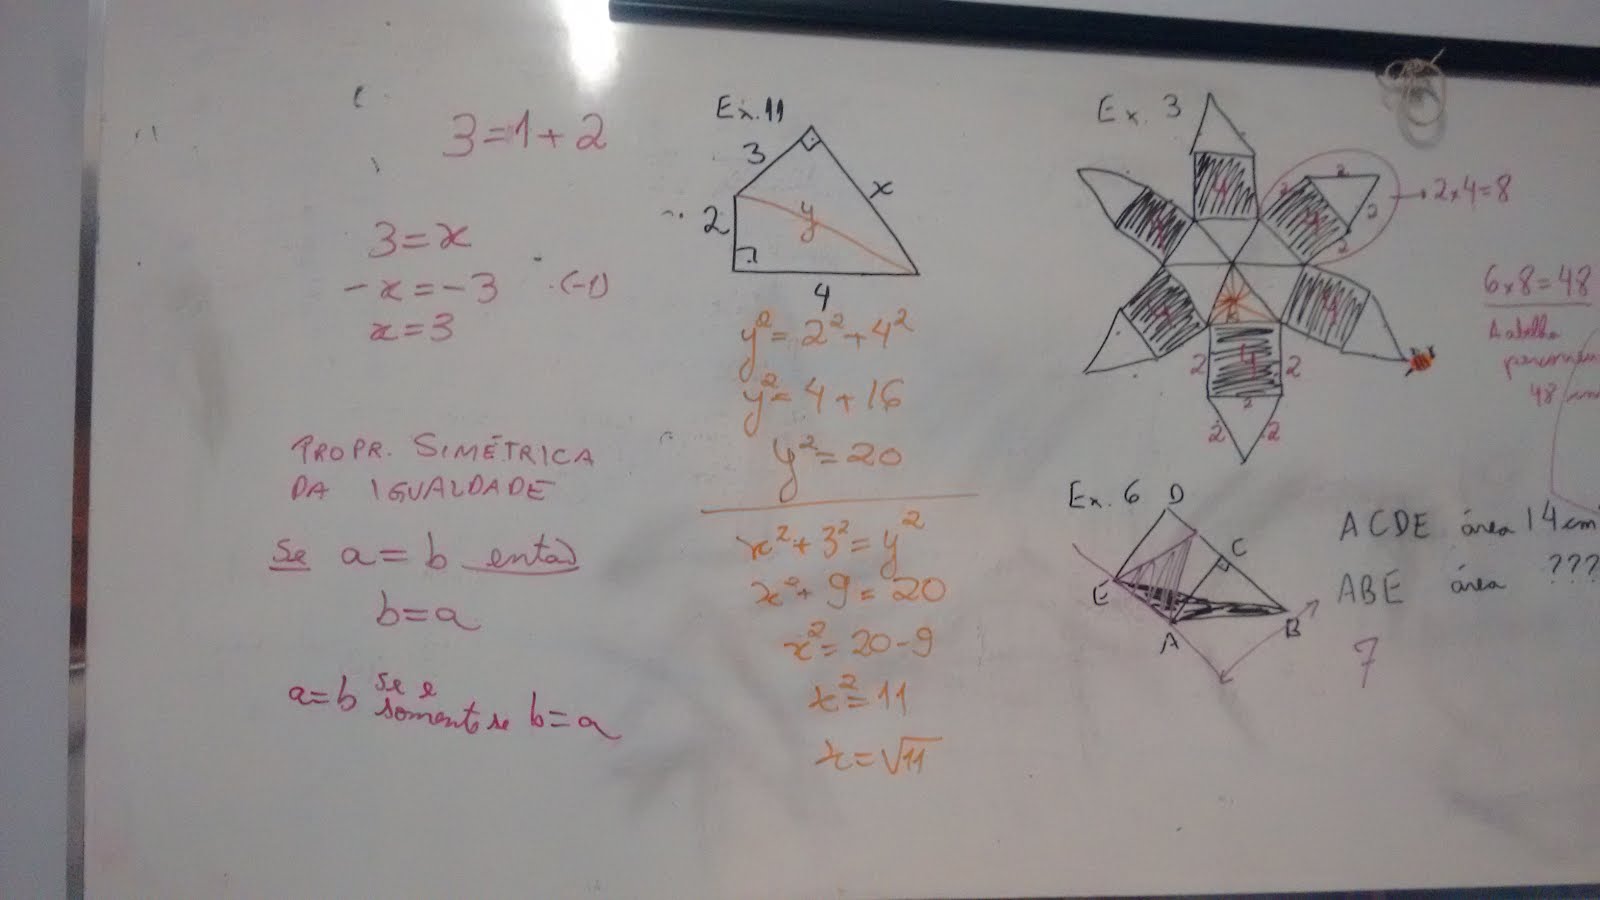 3=1+2
3=x
-x=-3 .(-1)
x=3
PROPR. SIMÉTRICA
DA IGUALDADE
se a=b então
b=a
a=b se e
somente se b=a
Ex.11
3
x
2
y
4
y²=2²+4²
y²=4+16
y²=20
x²+3²=y²
x²+9=20
x²=20-9
x²=11
x=√11
Ex. 3
4
4
2
2
4
2
2
2x4=8
4
4
2
4
2
2
2
2
6x8=48
A abelha
48
Ex. 6
D
C
E
A
B
ACDE área 14cm
ABE área ???
7